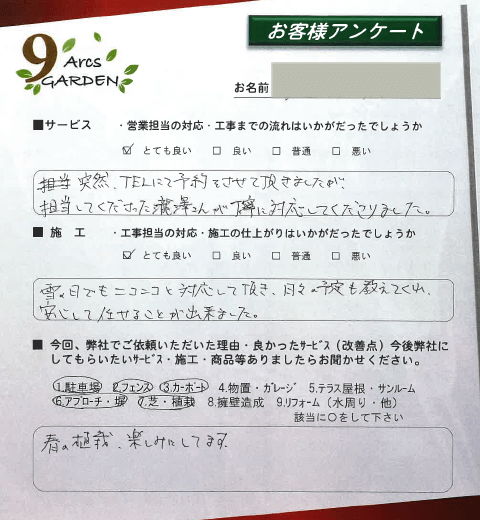 お客様アンケート
9 Arcs GARDEN
お名前
■サービス ・営業担当の対応・工事までの流れはいかがだったでしょうか
☑ とても良い □ 良い □ 普通 □ 悪い
担当 突然、TELにて予約をさせて頂きましたが、
担当してくださった瀧澤さんが丁寧に対応してくださりました。
■施 工 ・工事担当の対応・施工の仕上がりはいかがだったでしょうか
☑ とても良い □ 良い □ 普通 □ 悪い
雪の日でもニコニコと対応して頂き、日々の予定も教えてくれ、
安心して任せることが出来ました。
■ 今回、弊社でご依頼いただいた理由・良かったサービス（改善点）今後弊社に
してもらいたいサービス・施工・商品等ありましたらお聞かせください。
1.駐車場 2.フェンス 3.カーポート 4.物置・ガレージ 5.テラス屋根・サンルーム
6.アプローチ・塀 7.芝・植栽 8.擁壁造成 9.リフォーム（水周り・他）
該当に〇をして下さい
春の植栽、楽しみにしてます。